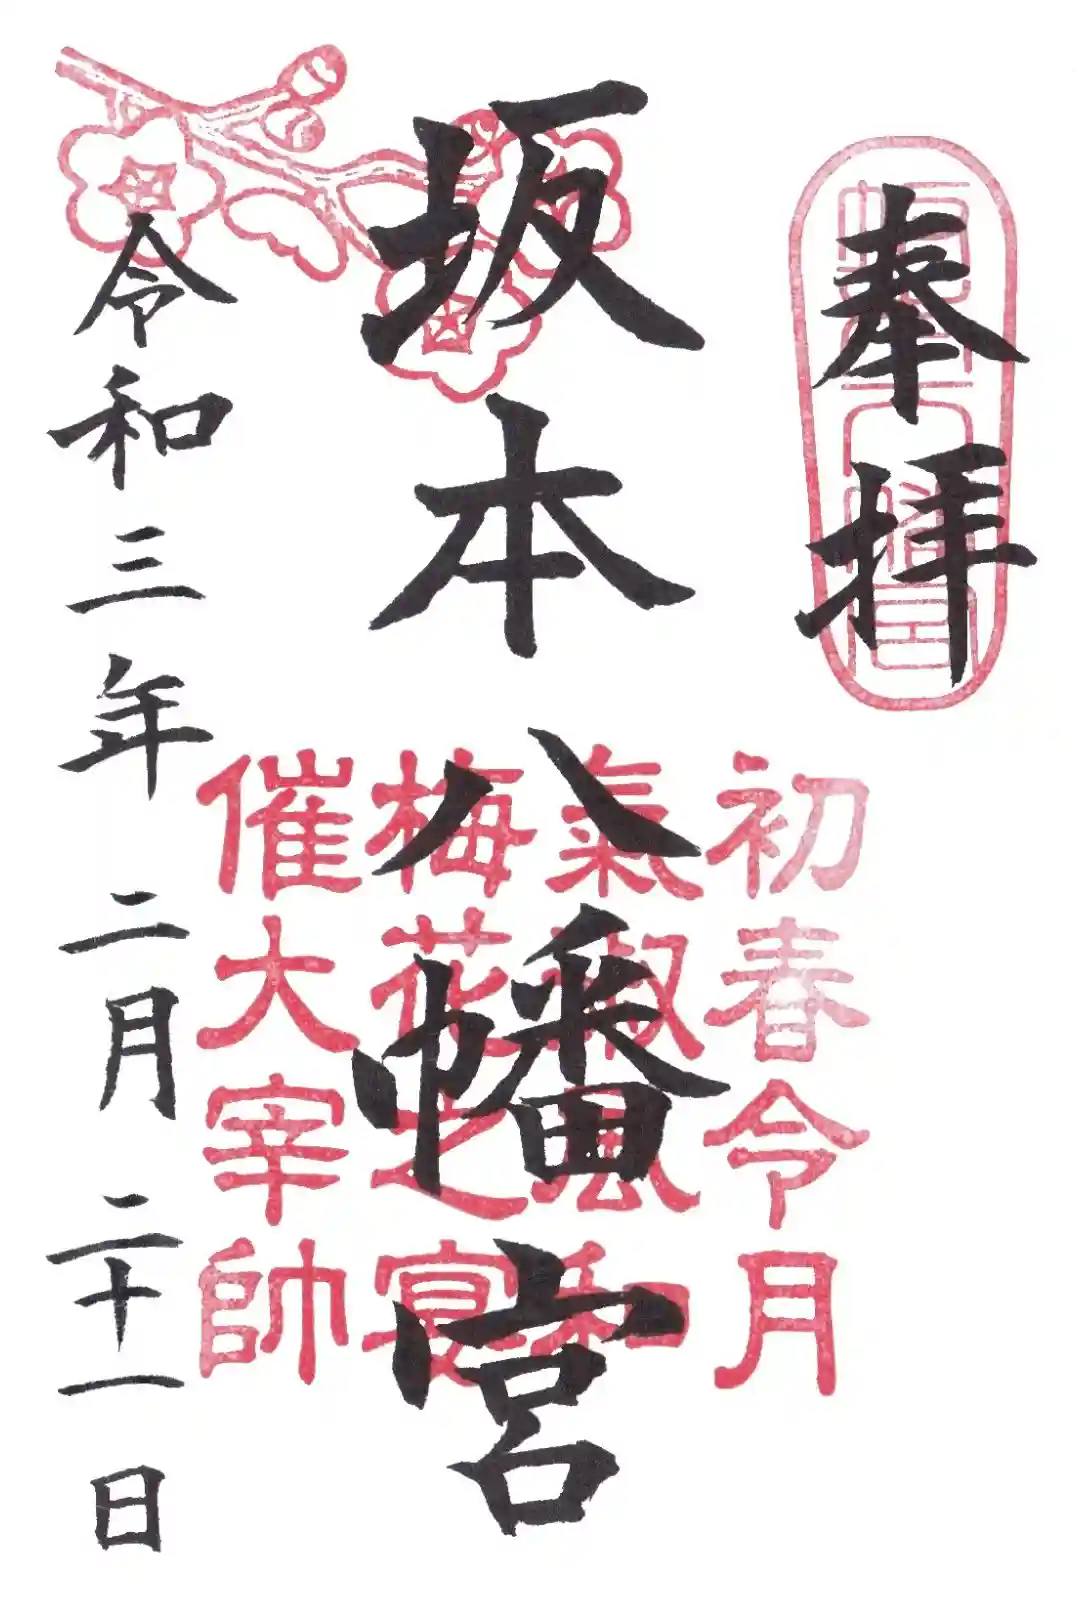 奉拝
坂本八幡宮
令和三年二月二十一日
初春令月
氣淑風和
梅花之宴
催大宰帥